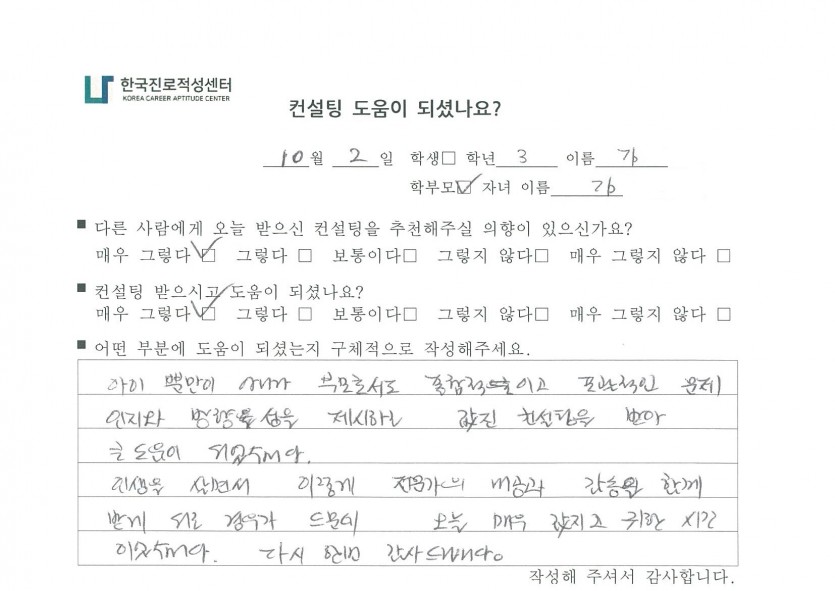 한국진로적성센터
KOREA CAREER APTITUDE CENTER
컨설팅 도움이 되셨나요?
10월 2일 학생□ 학년 3 이름
학부모☑ 자녀 이름
■ 다른 사람에게 오늘 받으신 컨설팅을 추천해주실 의향이 있으신가요?
매우 그렇다☑ 그렇다 □ 보통이다□ 그렇지 않다□ 매우 그렇지 않다 □
■ 컨설팅 받으시고 도움이 되셨나요?
매우 그렇다☑ 그렇다 □ 보통이다□ 그렇지 않다□ 매우 그렇지 않다 □
■ 어떤 부분에 도움이 되셨는지 구체적으로 작성해주세요.
아이 뿐만이 아니라 부모로서도 통합적이고 포괄적인 문제
인지와 방향성을 제시하는 값진 컨설팅을 받아
큰 도움이 되었습니다.
인생을 살면서 이렇게 전문가의 내용과 감동을 함께
받게 되는 경우가 드문데 오늘 매우 값지고 귀한 시간
이었습니다. 다시 한번 감사드립니다.
작성해 주셔서 감사합니다.